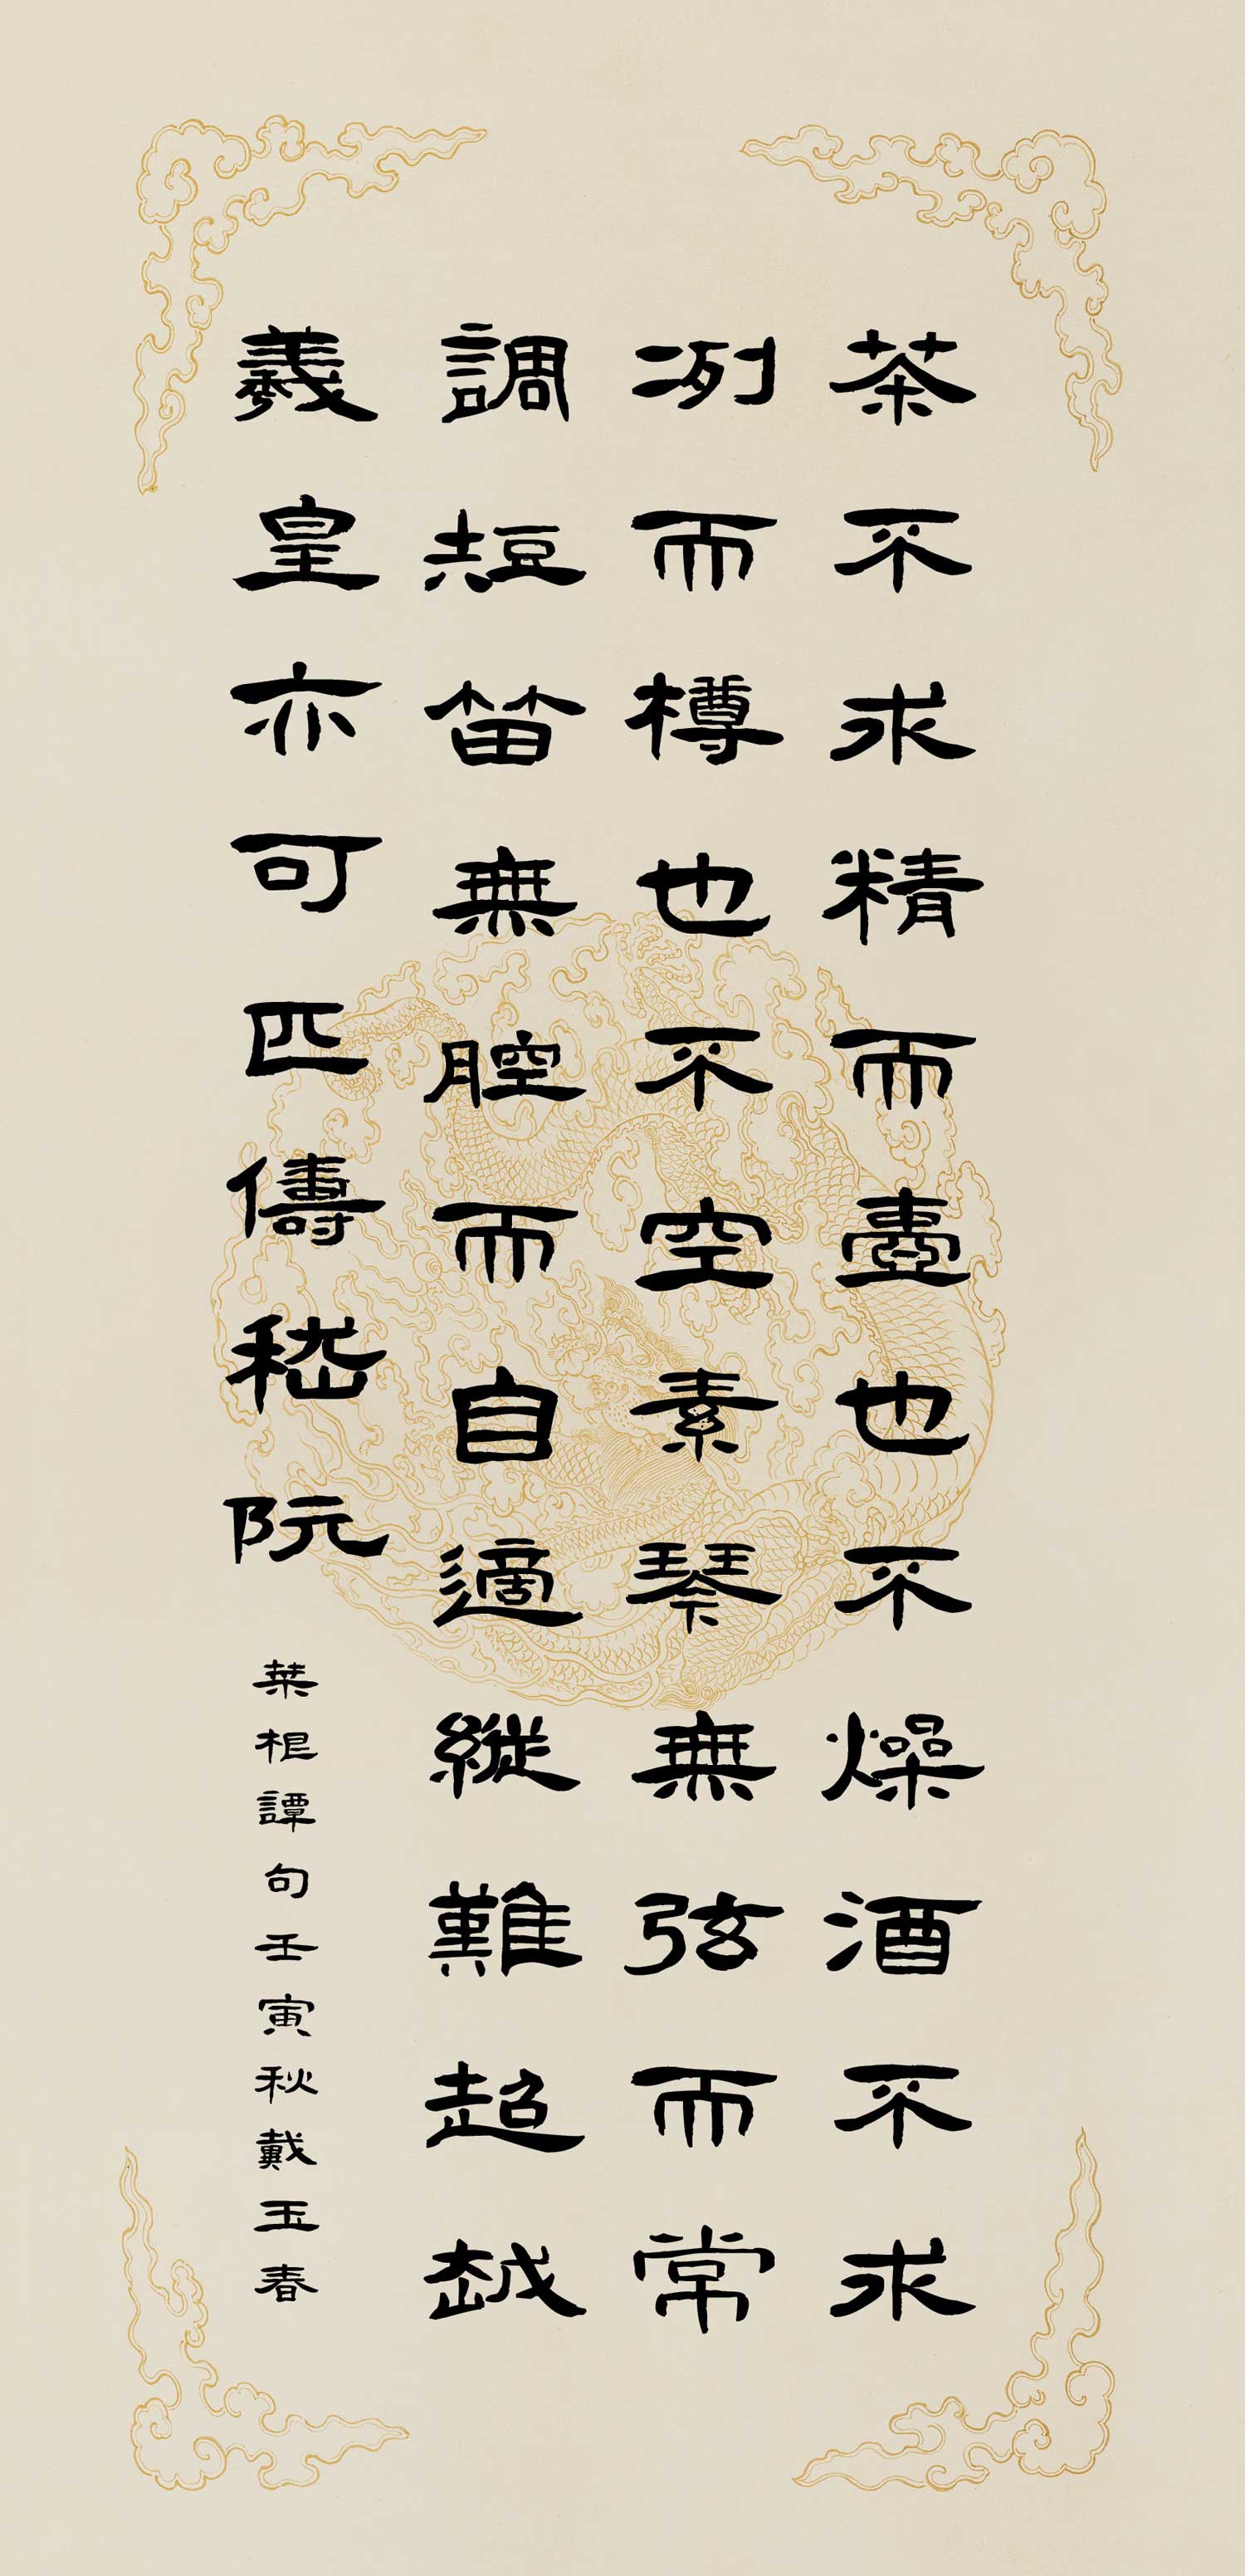 茶不求精而壺也不燥酒不求
冽而樽也不空素琴無弦而常
調短笛無腔而自適縱難超越
羲皇亦可匹儔嵇阮
菜根譚句壬寅秋戴玉春